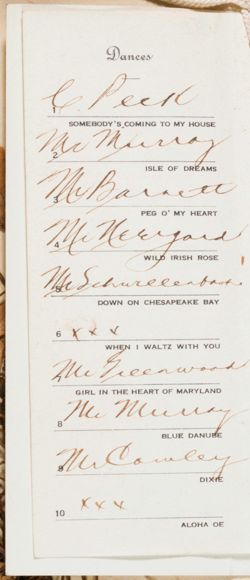 Dances
1 C Peck
SOMEBODY'S COMING TO MY HOUSE
2 Mr Murray
ISLE OF DREAMS
3 Mr Barnett
PEG O' MY HEART
4 Mr
WILD IRISH ROSE
5 Mr
DOWN ON CHESAPEAKE BAY
6 x x x
WHEN I WALTZ WITH YOU
7 Mr Greenwood
GIRL IN THE HEART OF MARYLAND
8 Mr Murray
BLUE DANUBE
9 Mr Cowley
DIXIE
10 xxx
ALOHA OE